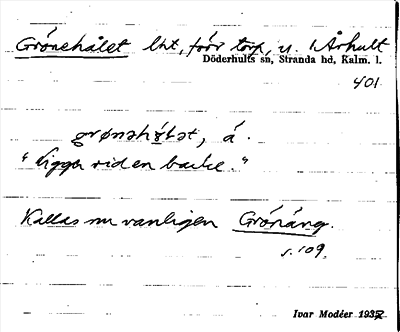 Grönehålet lht, förr torp, u. Århult
Döderhults sn, Stranda hd, Kalm. l.
401.
grønəhólət, á.
"ligger vid en backe."
Kallas nu vanligen Grönäng.
s. 109.
Ivar Modéer 1937